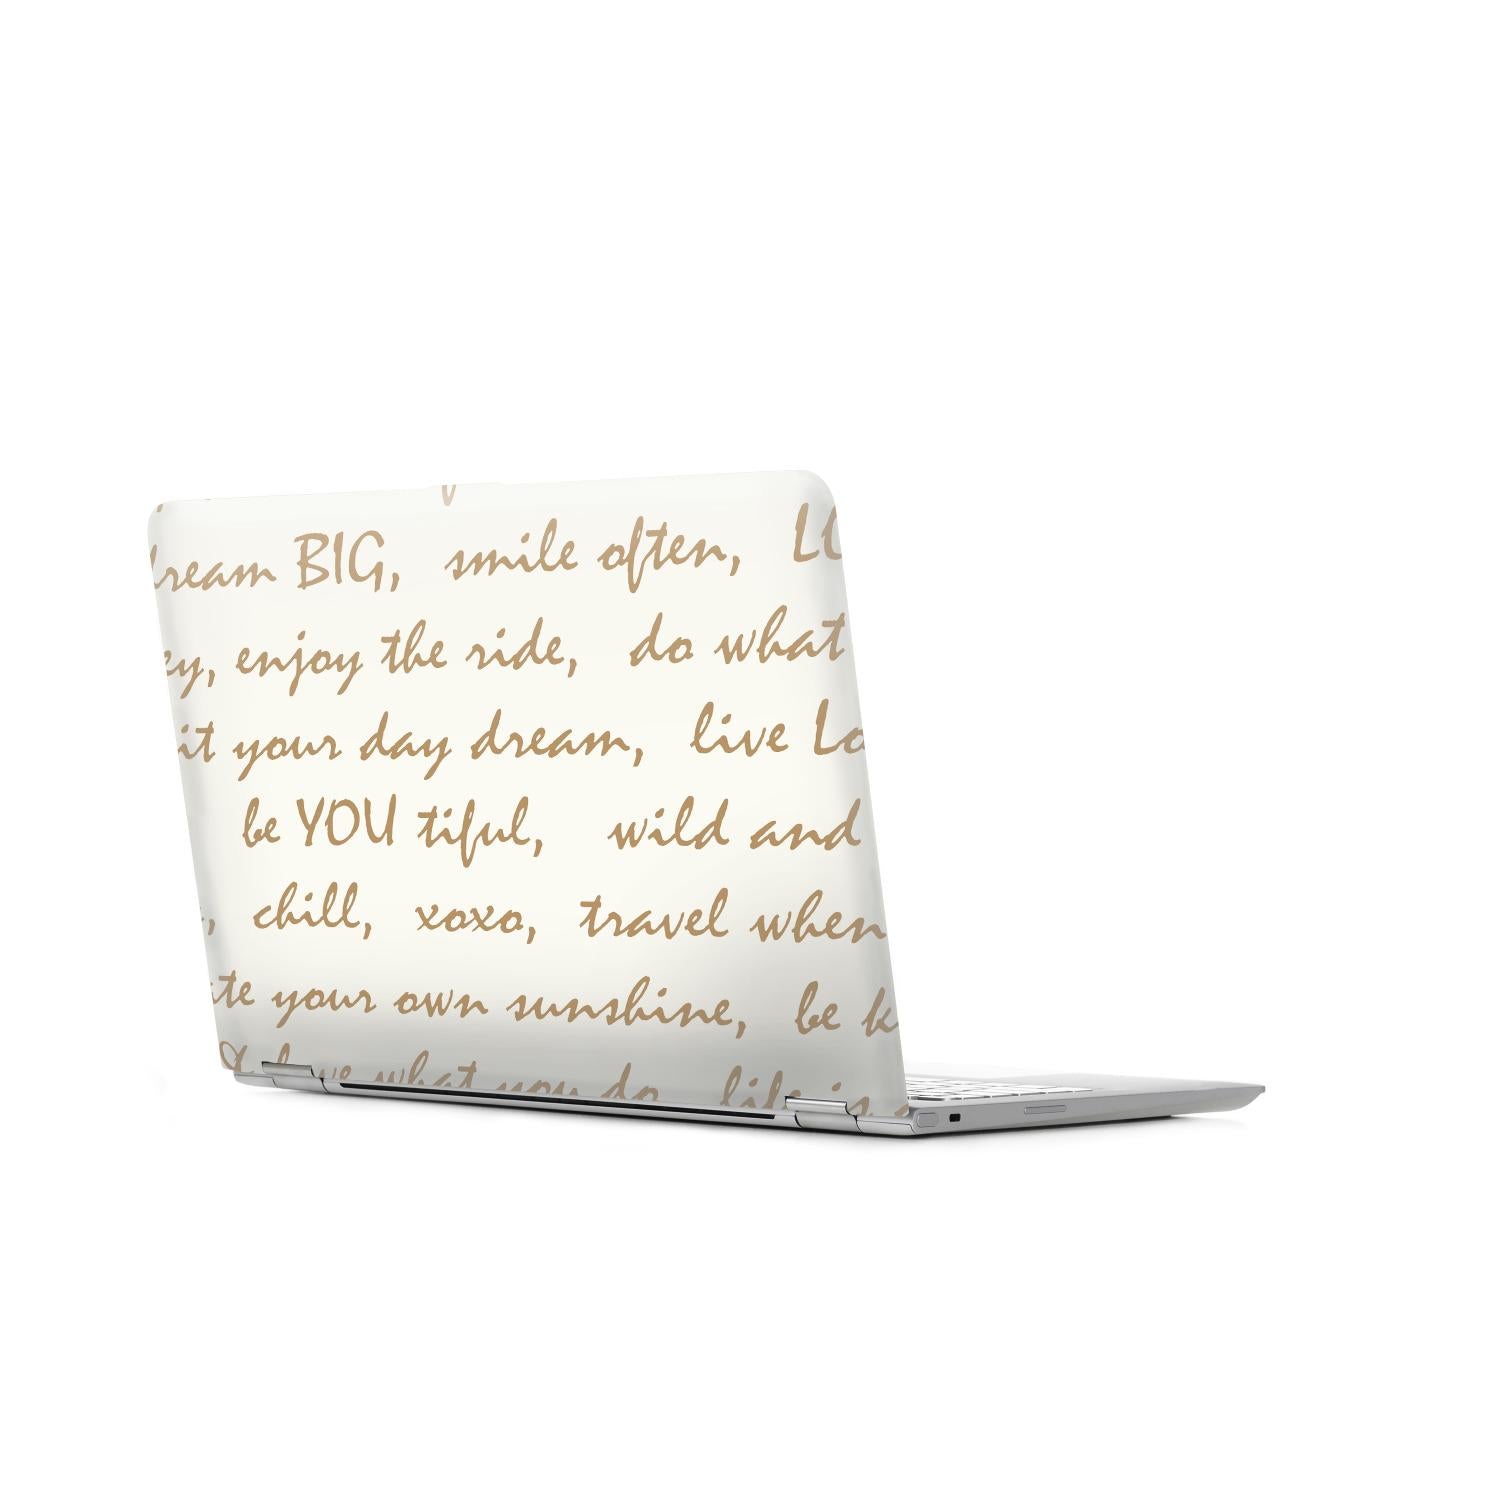 dream BIG, smile often,
enjoy the ride, do what
it your day dream, live
be YOU tiful, wild and
chill, xoxo, travel when
your own sunshine, be
what you do life is